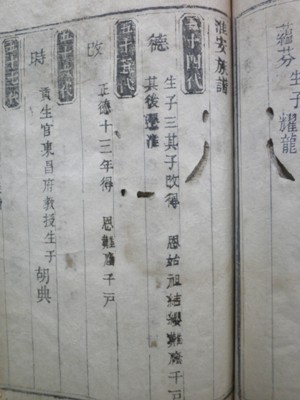 蘊芬生子耀龍
淮安族譜
五十四代
德 生子三其子改得 恩始祖結纓難廕千戶
其後懸淮
五十五代
改 正德十三年得 恩難廕千戶
五十六代
時 貢生官東昌府教授生子胡典